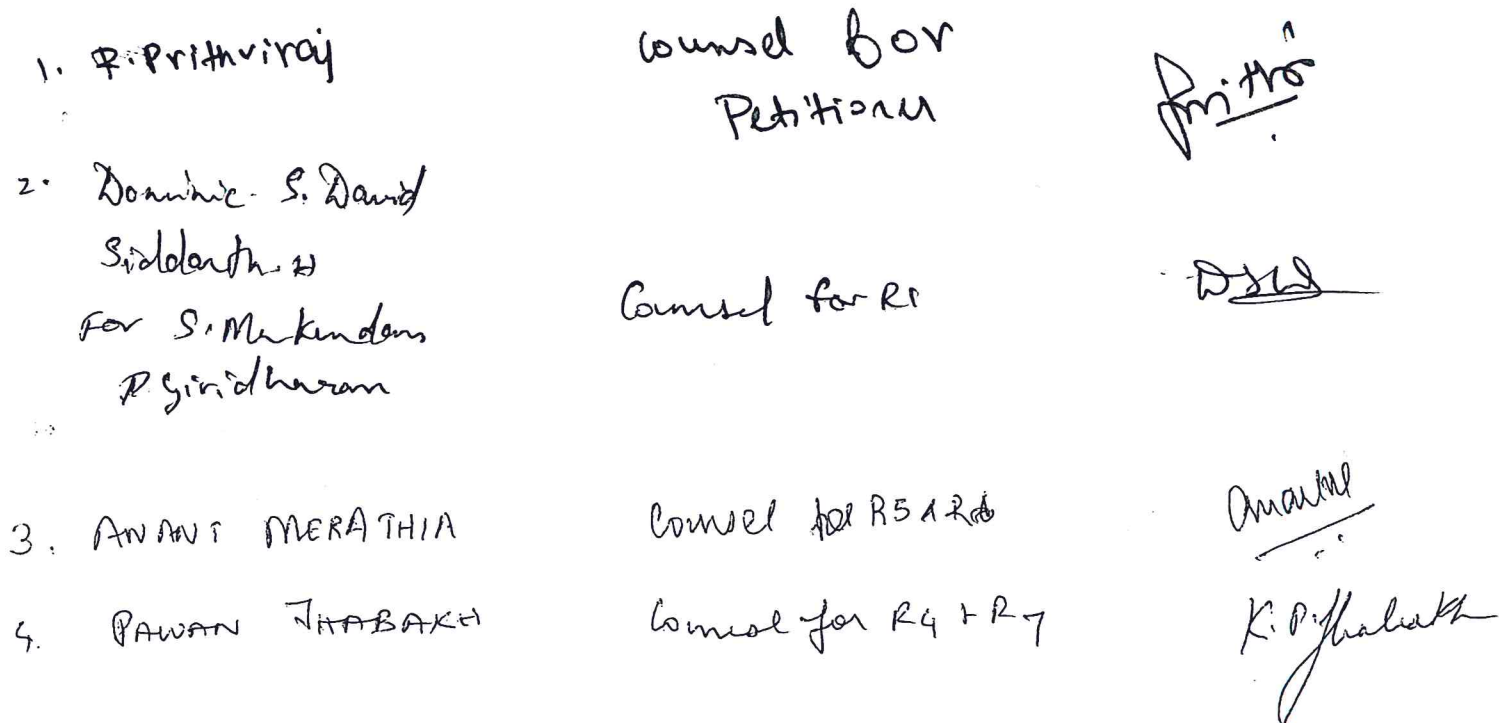 1. R. Prithviraj counsel for
Petitioner
2. Dominic. S. David
Siddarth. H
For S. Mukundan
P Giridharan
Counsel for R1
3. ANANT MERATHIA Counsel for R5 & R6
4. PAWAN JHABAKH Counsel for R4 + R7 K. P. Jhabakh